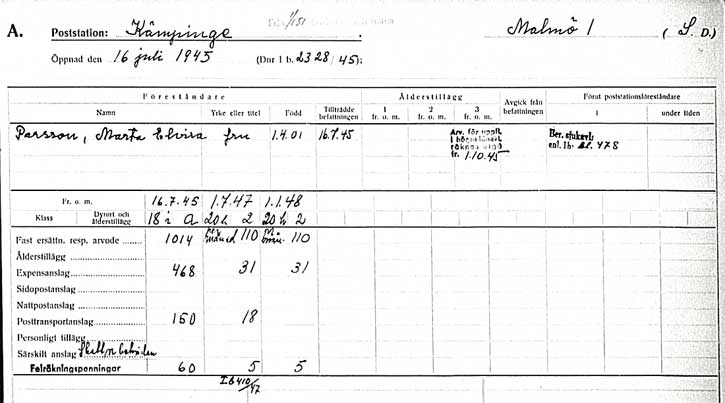 A. Poststation: Kämpinge Malmö 1 (S. D.)
Öppnad den 16 juli 1945 (Dnr I b. 2328/45);
Föreståndare Ålderstillägg Avgick från befattningen Förut poststationsföreståndare
Namn Yrke eller titel Född Tillträdde befattningen 1 fr. o. m. 2 fr. o. m. 3 fr. o. m. i under tiden
Persson, Marta Elvira fru 1.4.01 16.7.45 Arv. för uppfl. i högre lönekl. räknas utgå fr. 1.10.45 Ber. sjukavl. enl. Ib. 478
Fr. o. m. 16.7.45 1.7.47 1.1.48
Klass Dyrort och ålderstillägg 18 i a 20 h 2 20 h 2
Fast ersättn. resp. arvode 1014 per månad 110 110
Ålderstillägg
Expensanslag 468 31 31
Sidopostanslag
Nattpostanslag
Posttransportanslag 150 18
Personligt tillägg
Särskilt anslag
Felräkningspenningar 60 5 5
I b 410/47